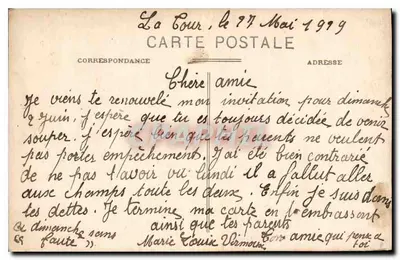 La Tour, le 27 Mai 1919
CARTE POSTALE
CORRESPONDANCE
ADRESSE
Chère amie
Je viens te renouvelé mon invitation pour dimanche
2 juin, j'espère que tu es toujours décidée de venir
souper. j'espère bien que tes parents ne veulent
pas porter empêchement. J'ai été bien contrarie
de ne pas t'avoir vu lundi il a fallut aller
aux champs toute les deux. Enfin je suis dans
tes dettes. Je termine ma carte en t'embrassant
ainsi que tes parents
a dimanche sans
faute ".
Marie Louise
Ton amie qui pense a
toi